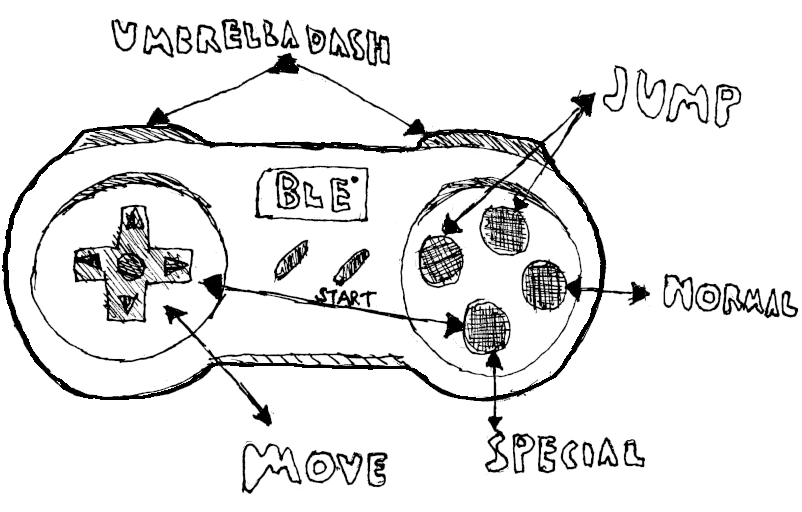 UMBRELLA DASH
JUMP
BLE
START
NORMAL
MOVE
SPECIAL